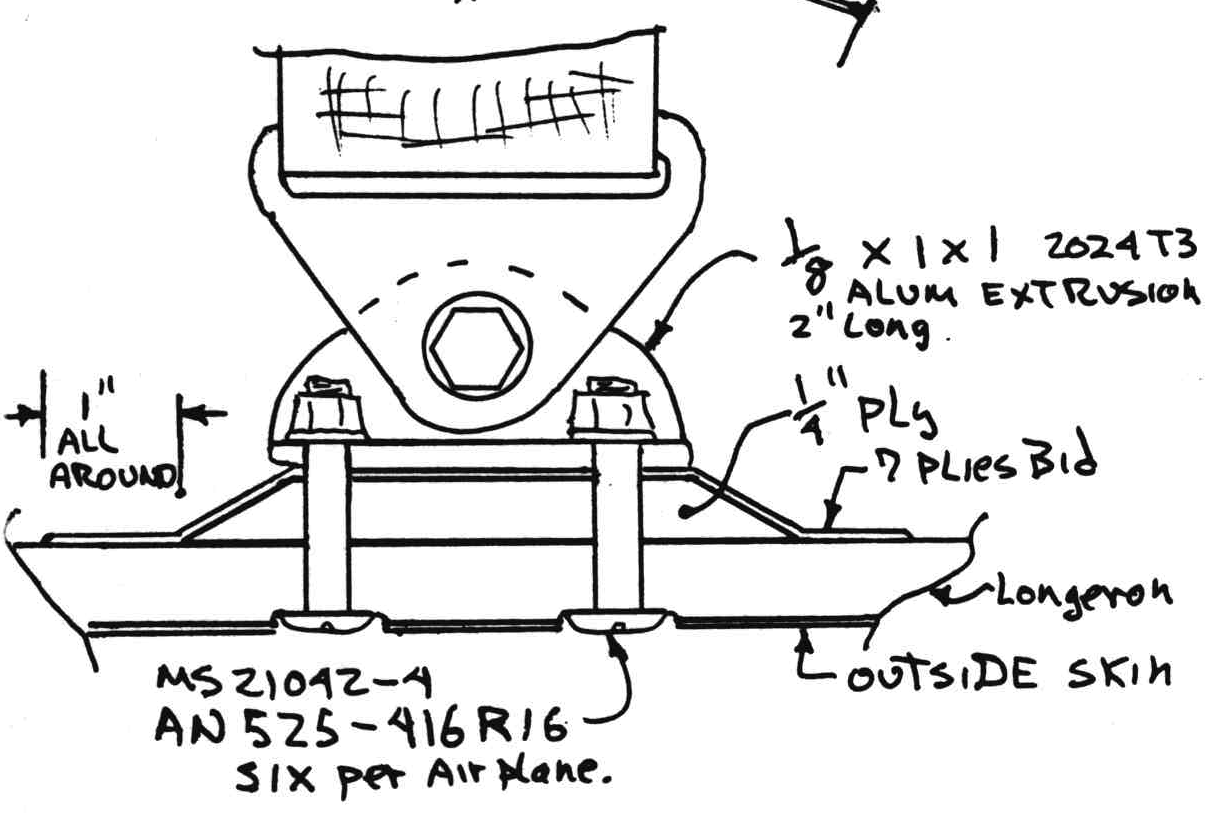 1/8 x 1 x 1 2024 T3
ALUM EXTRUSION
2" Long.
1"
ALL
AROUND
1/4" PLY
7 PLIES BID
Longeron
OUTSIDE SKIN
MS21042-4
AN 525-416R16
SIX per AirPlane.